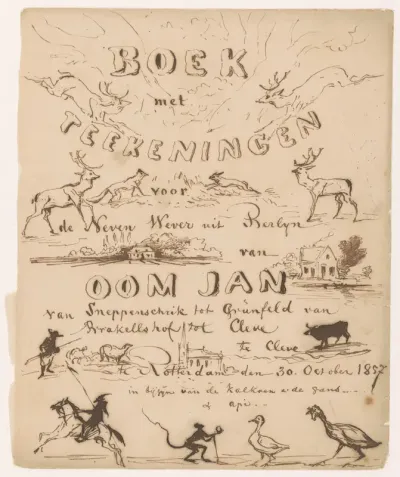 BOEK
met
TEEKENINGEN
voor
de Neven Wever uit Berlyn
van
OOM JAN
van Sneppenschrik tot Grünfeld van
Brakellshof tot Cleve
te Cleve
te Rotterdam den 30. October 1857
in bijzijn van de kalkoen & de gans
of